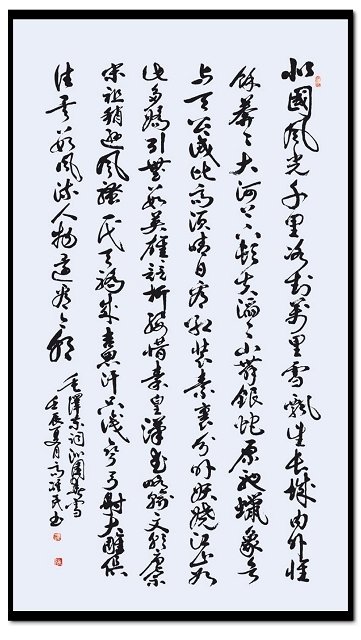 北國風光千里冰封萬里雪飄望長城內外惟
餘莽莽大河上下頓失滔滔山舞銀蛇原馳蠟象欲
與天公試比高須晴日看紅裝素裹分外妖嬈江山如
此多嬌引無數英雄競折腰惜秦皇漢武略輸文采唐宗
宋祖稍遜風騷一代天驕成吉思汗只識彎弓射大雕俱
往矣數風流人物還看今朝
毛澤東詞沁園春雪
壬辰夏月高民書